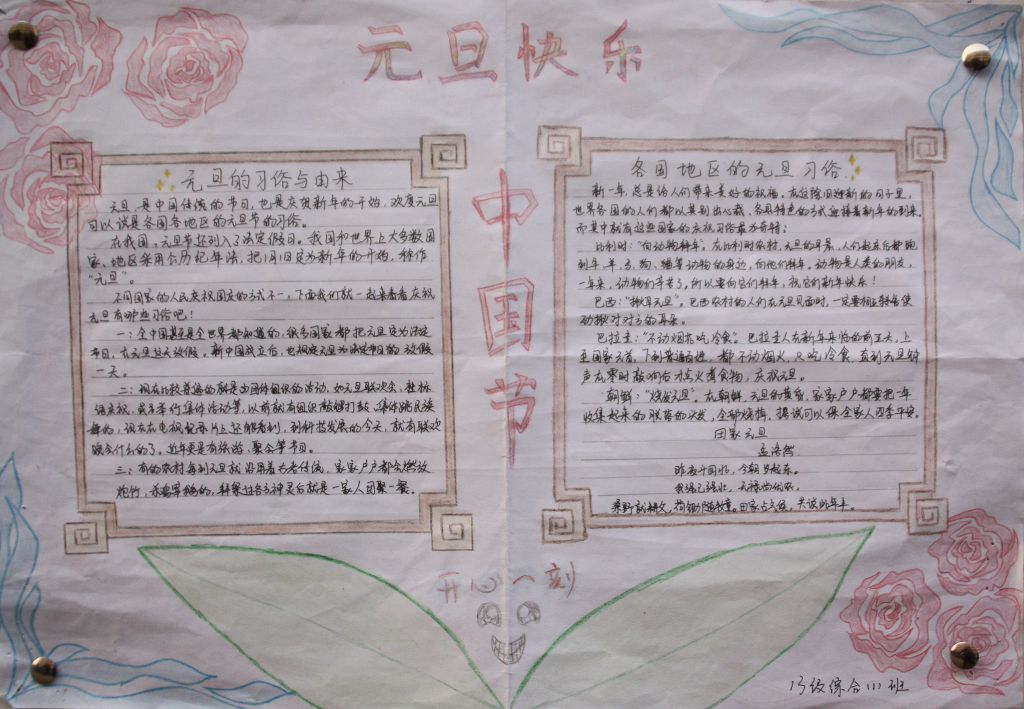 元旦快乐
中国节
元旦的习俗与由来
元旦,是中国传统的节日,也是庆贺新年的开始,欢度元旦
可以说是各国各地区的元旦节的习俗。
在我国,元旦节还列入了法定假日。我国和世界上大多数国
家、地区采用公历纪年法,把1月1日定为新年的开始,称作
“元旦”。
不同国家的人民庆祝国庆的方式不一,下面我们就一起来看看庆祝
元旦有哪些习俗吧!
一:全中国甚至是全世界都知道的,很多国家都把元旦定为法定
节日,在元旦当天放假。新中国成立后,也规定元旦为法定节日的放假
一天。
二:现在比较普遍的就是由团体组织的活动,如元旦联欢会、挂标
语庆祝、或者举行集体活动等,以前就有组织敲锣打鼓、集体跳民族
舞的,现在在电视纪录片上还能看到,到科技发展的今天,就有联欢
晚会什么的了。近年更是有旅游、聚会等节目。
三:有的农村每到元旦就沿用着古老传统,家家户户都会燃放
炮竹,杀鸡宰鹅的,拜祭过各方神灵后就是一家人团聚一餐。
各国地区的元旦习俗
新一年,总是给人们带来美好的祝福。在这除旧迎新的日子里,
世界各国的人们都以其别出心裁、各具特色的方式迎接着新年的到来。
而其中就有这些国家的庆祝习俗最为奇特:
比利时:“向动物拜年”。在比利时农村,元旦的早晨,人们起床后都跑
到牛、羊、马、狗、猫等动物的身边,向他们拜年。动物是人类的朋友,
一年来,动物们辛苦了,所以要向它们拜年,祝它们新年快乐!
巴西:“揪耳元旦”。巴西农村的人们在元旦见面时,一定要相互
动揪对对方的耳朵。
“不动烟火吃冷食”。
至国家元首,下到普通百姓,都不动烟火,只吃冷食,直到元旦钟
声在零时敲响后才点火煮食物,庆祝元旦。
朝鲜:“烧发元旦”。在朝鲜,元旦的黄昏,家家户户都要把一年
收集起来的脱落的头发,全部烧掉,据说可以保全家人四季平安。
田家元旦
孟浩然
昨夜斗回北,今朝岁起东。
我年已强壮,无禄尚忧农。
桑野就耕父,荷锄随牧童。田家占气候,共说此年丰。
开心一刻
13级综合(1)班